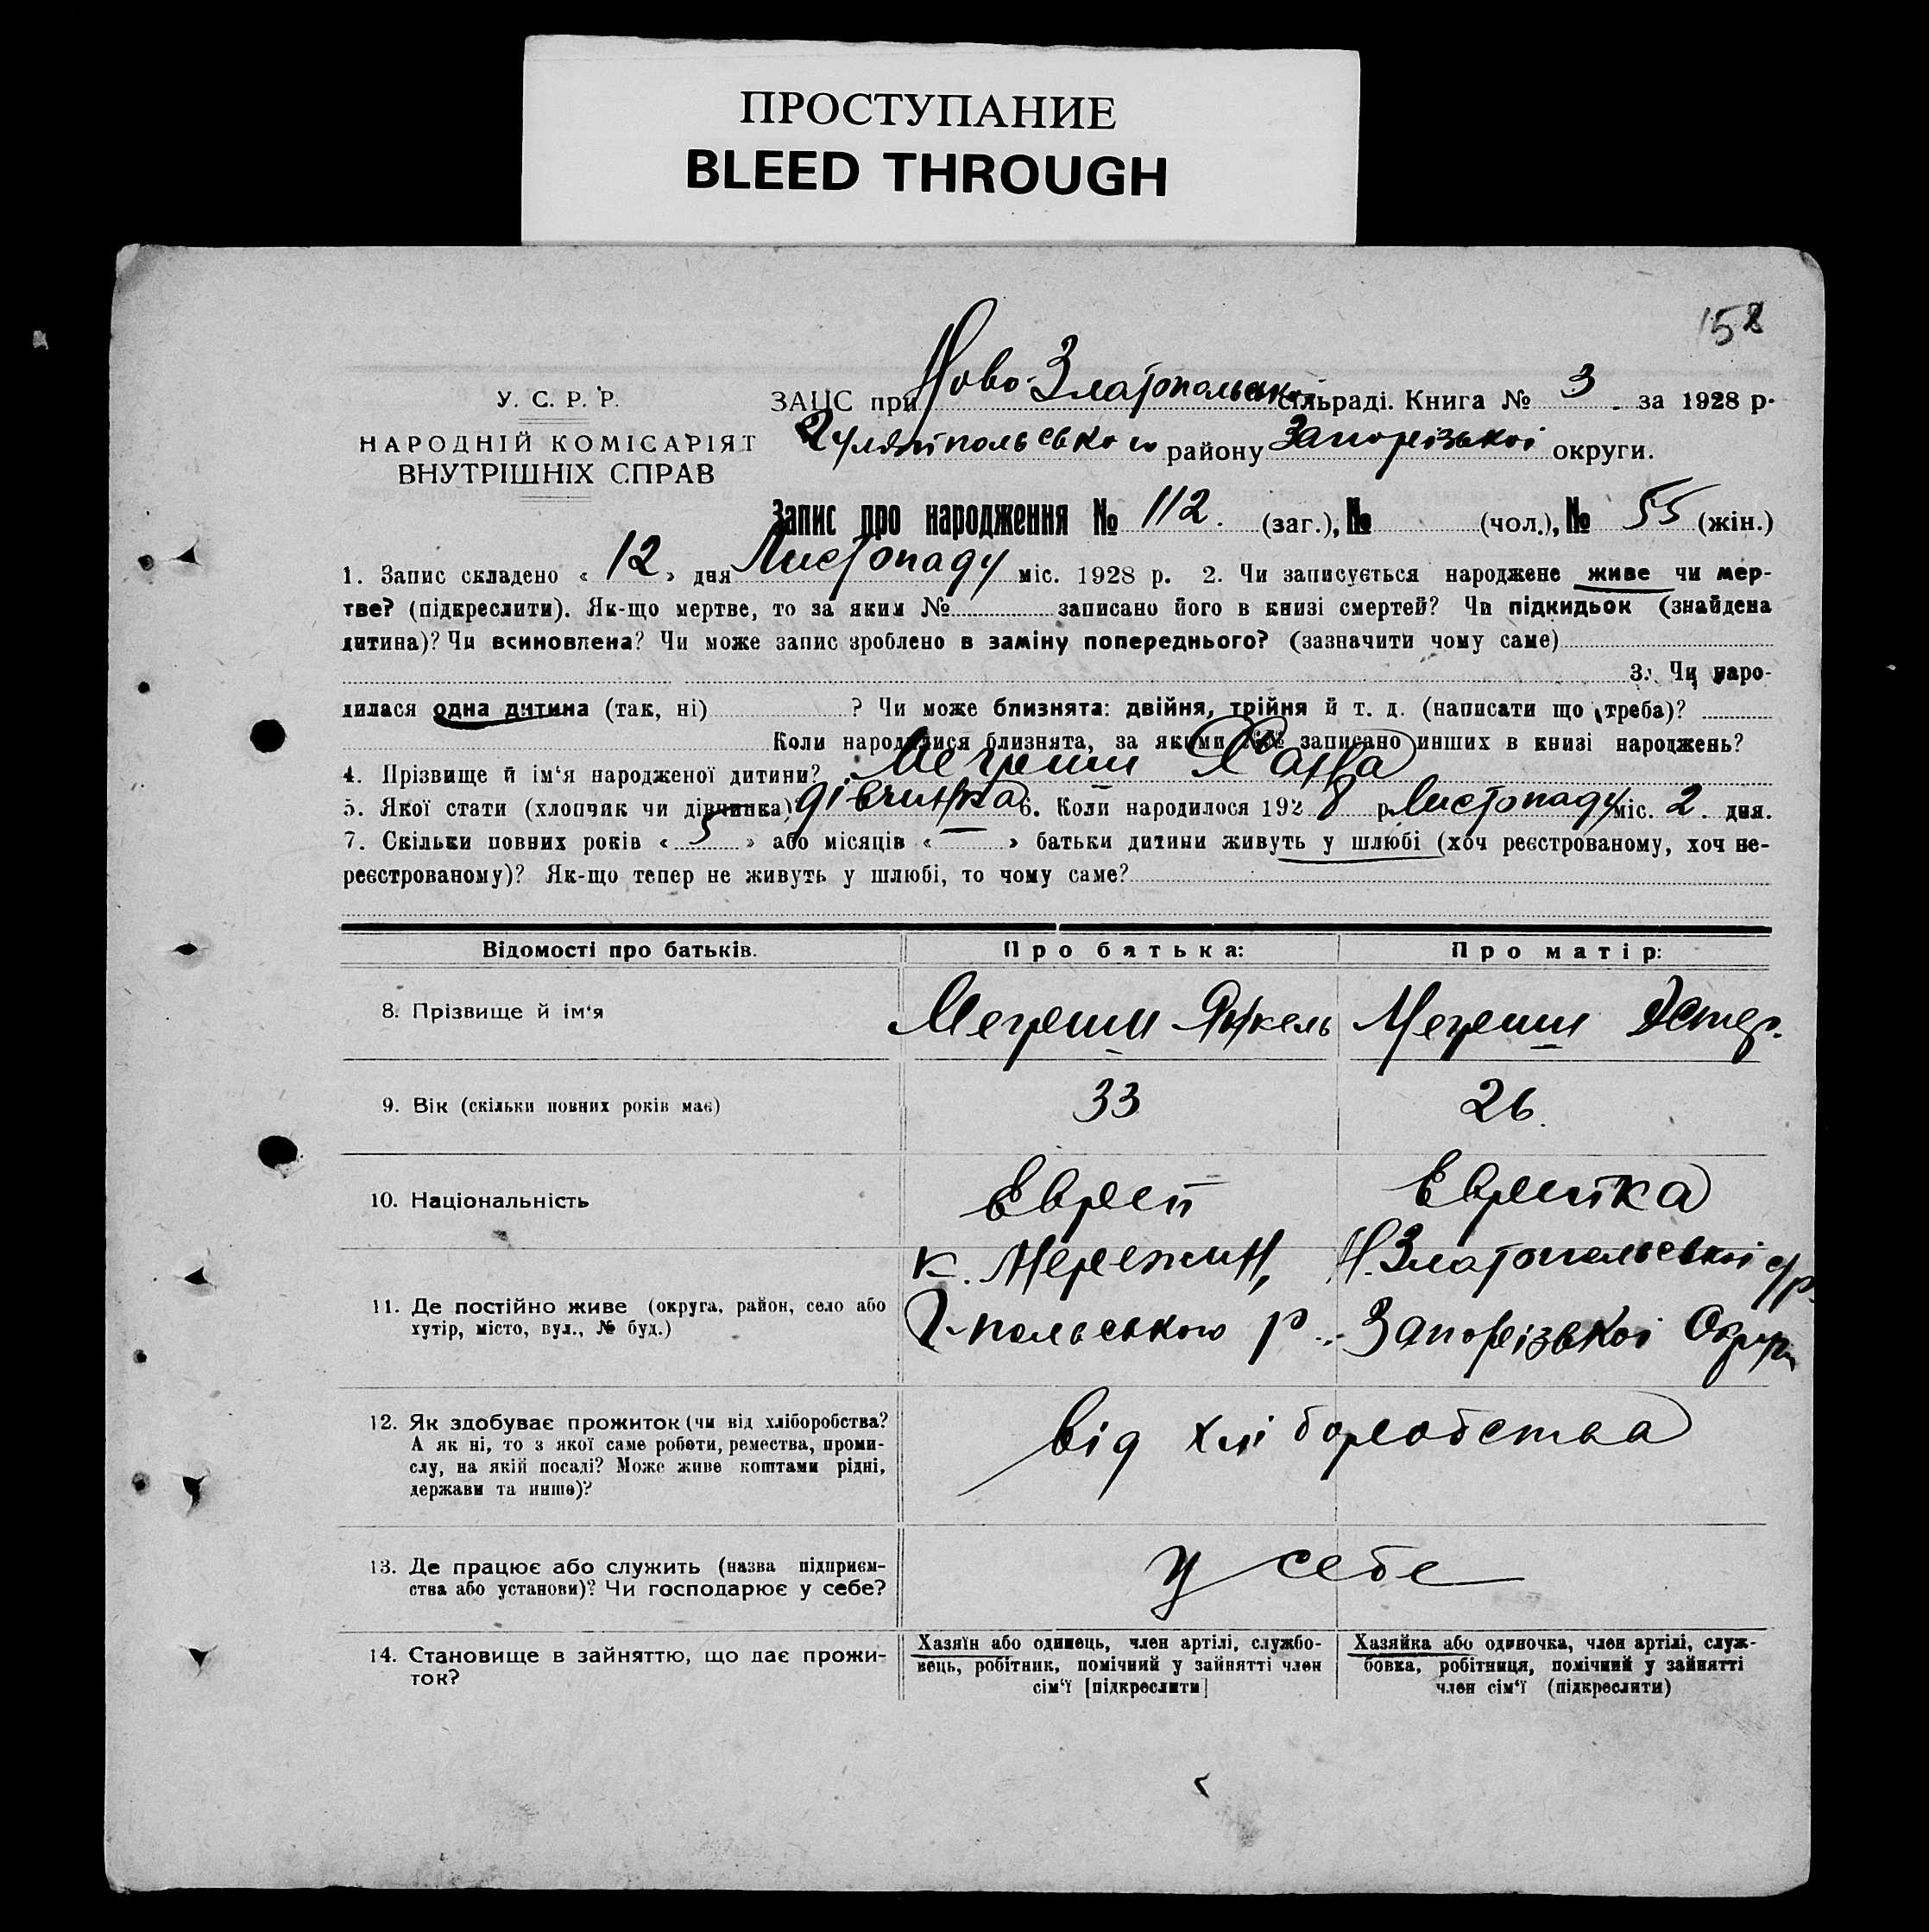 ПРОСТУПАНИЕ
BLEED THROUGH
158
У. С. Р. Р.
НАРОДНІЙ КОМІСАРІЯТ
ВНУТРІШНІХ СПРАВ
ЗАЦС при Ново-Златопольській сільраді. Книга № 3. за 1928 р.
Гуляйпольського району Запорізької округи.
Запис про народження № 112. (заг.), № (чол.), № 55 (жін.)
1. Запис складено « 12 » дня Листопаду міс. 1928 р. 2. Чи записується народжене живе чи мер-
тве? (підкреслити). Як-що мертве, то за яким № записано його в книзі смертей? Чи підкидьок (знайдена
дитина)? Чи всиновлена? Чи може запис зроблено в заміну попереднього? (зазначити чому саме)
3. Чи наро-
дилася одна дитина (так, ні) ? Чи може близнята: двійня, трійня й т. д. (написати що треба)?
Коли народилися близнята, за якими №№ записано инших в книзі народжень?
4. Прізвище й ім'я народженої дитини?
5. Якої стати (хлопчик чи дівчинка) дівчинка 6. Коли народилося 1928 р. Листопаду міс. 2. дня.
7. Скільки повних років « 5 » або місяців « — » батьки дитини живуть у шлюбі (хоч реєстрованому, хоч не-
реєстрованому)? Як-що тепер не живуть у шлюбі, то чому саме?
Відомості про батьків. Про батька: Про матір:
8. Прізвище й ім'я Янкель
9. Вік (скільки повних років має) 33 26.
10. Національність Еврей Еврейка
11. Де постійно живе (округа, район, село або
хутір, місто, вул., № буд.)
к. Межеріч, Н. Златопольської с/р.
Г-польського р. Запорізької Округи
12. Як здобуває прожиток (чи від хліборобства?
А як ні, то з якої саме роботи, ремества, проми-
слу, на якій посаді? Може живе коштами рідні,
держави та инше)?
від хліборобства
13. Де працює або служить (назва підприєм-
ства або установи)? Чи господарює у себе?
у себе
14. Становище в зайняттю, що дає прожи-
ток?
Хазяїн або одинець, член артілі, службо-
вець, робітник, помічний у зайнятті член
сім'ї [підкреслити]
Хазяйка або одиночка, член артілі, служ-
бовка, робітниця, помічний у зайнятті
член сім'ї (підкреслити)